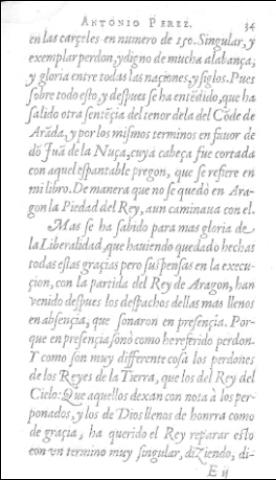 ANTONIO PEREZ. 34
en las carçeles en numero de 150. Singular, y
exemplar perdon, y digno de mucha alabança,
y gloria entre todas las naçiones, y siglos. Pues
sobre todo esto, y despues se ha entẽdido, que ha
salido otra sentẽçia del tenor de la del Cõde de
Arãda, y por los mismos terminos en fauor de
dõ Juã de la Nuça, cuya cabeça fue cortada
con aquel espantable pregon, que se refiere en
mi libro. De manera que no se quedò en Ara-
gon la Piedad del Rey, aun caminaua con el.
Mas se ha sabido para mas gloria de
la Liberalidad, que hauiendo quedado hechas
todas estas graçias pero suspensas en la execu-
çion, con la partida del Rey de Aragon, han
venido despues los despachos dellas mas llenos
en absençia, que sonaron en presençia. Por-
que en presençia sonò como he referido perdon.
Y como son muy differente cosa los perdones
de los Reyes de la Tierra, que los del Rey del
Cielo: Que aquellos dexan con nota à los per-
ponados, y los de Dios llenos de honrra como
de graçia, ha querido el Rey reparar esto
con un termino muy singular, diZiendo, di-
E ij